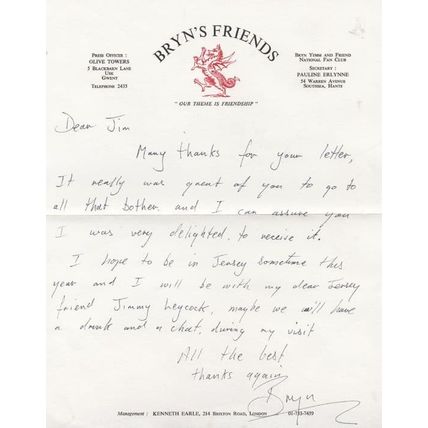 BRYN'S FRIENDS
PRESS OFFICER :
OLIVE TOWERS
5 BLACKBARN LANE
USK
GWENT
TELEPHONE 2435
BRYN YEMM AND FRIEND
NATIONAL FAN CLUB
SECRETARY :
PAULINE ERLYNNE
54 WARREN AVENUE
SOUTHSEA, HANTS
"OUR THEME IS FRIENDSHIP"
Dear Jim
Many thanks for your letter,
It really was great of you to go to
all that bother and I can assure you
I was very delighted, to receive it.
I hope to be in Jersey sometime this
year and I will be with my dear Jersey
friend Jimmy Leycock, maybe we will have
a drink and a chat, during my visit
All the best
thanks again
Bryn
Management : KENNETH EARLE, 214 BRIXTON ROAD, LONDON 01-733-7439